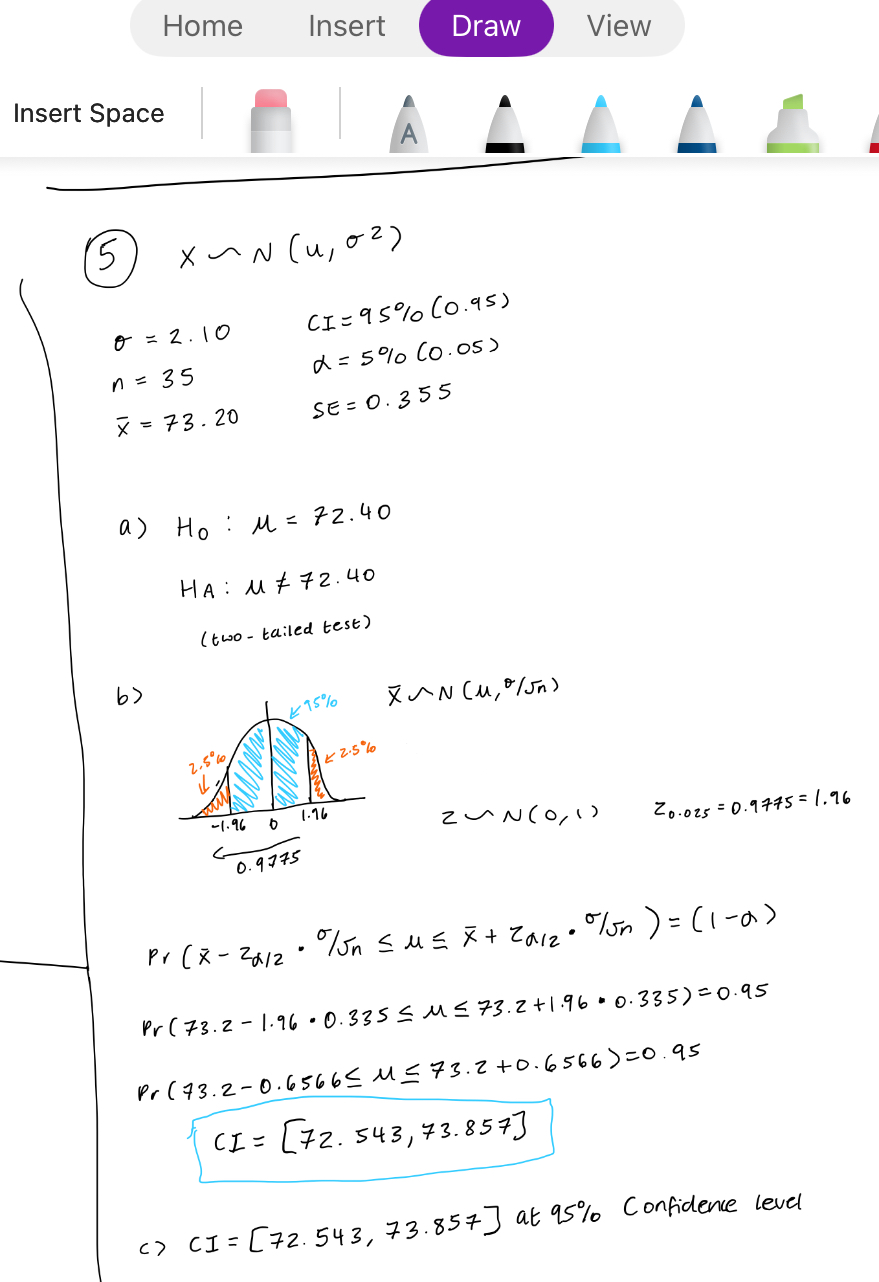 Home Insert Draw View
Insert Space
A
5 X ~ N (μ, σ²)
σ = 2.10 CI = 95% (0.95)
n = 35 α = 5% (0.05)
x̄ = 73.20 SE = 0.355
a) H₀ : μ = 72.40
HA : μ ≠ 72.40
(two-tailed test)
b) x̄ ~ N (μ, σ/√n)
95%
2.5% 2.5%
-1.96 0 1.96
0.9775
Z ~ N(0,1) Z₀.₀₂₅ = 0.9775 = 1.96
Pr (x̄ - Zα/2 • σ/√n ≤ μ ≤ x̄ + Zα/2 • σ/√n) = (1-α)
Pr(73.2 - 1.96 • 0.335 ≤ μ ≤ 73.2 + 1.96 • 0.335) = 0.95
Pr(73.2 - 0.6566 ≤ μ ≤ 73.2 + 0.6566) = 0.95
CI = [72.543, 73.857]
c) CI = [72.543, 73.857] at 95% Confidence level